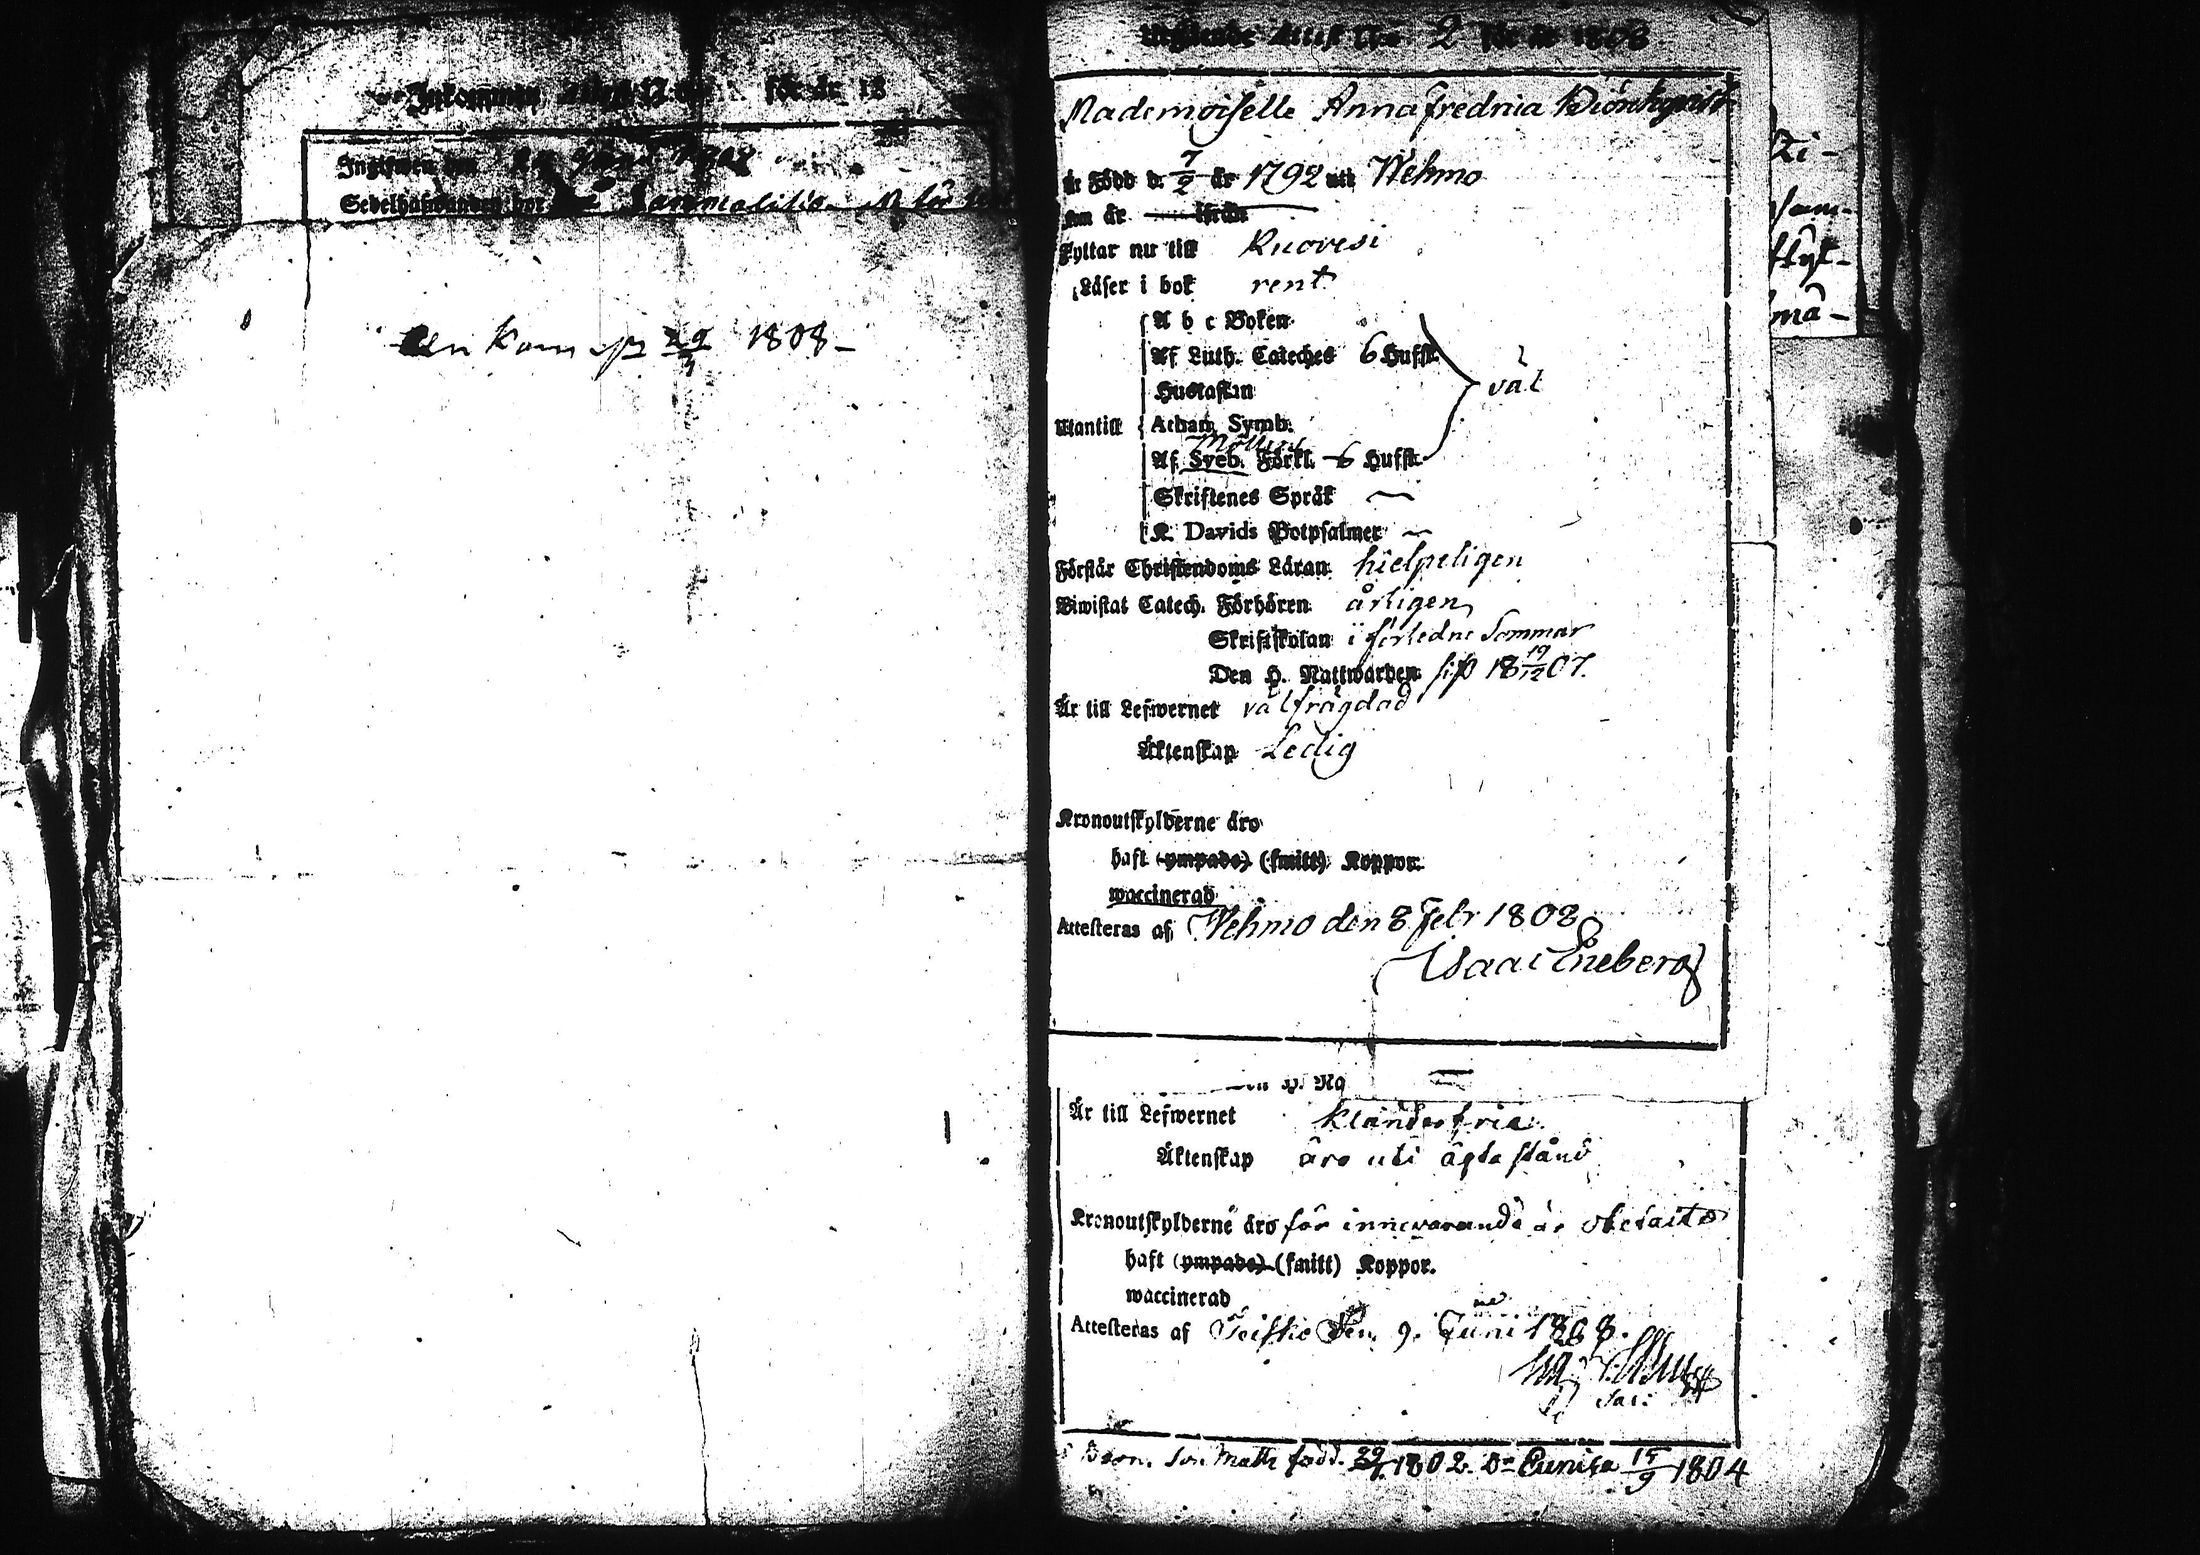 Inkommen Attest N:o för år 18
Ingifwen den
Sedelhafwanden bor
den kom 1808 –
Utgående Attest N:o 2 för år 1808
Mademoiselle Anna Fredrica Biörnkqvist
är Född d. 7/2 år 1792 uti Wehmo
om år ifrån
Flyttar nu till Ruovesi
Läser i bok rent
A b c Boken
Af Luth. Cateches 6 Hufst.
Hustaflan
väl
Utantill Athan. Symb.
Möllers
Af Sveb. Förkl. 6 Hufst.
Skriftenes Språk —
K. Davids Botpsalmer —
Förstår Christendoms Läran hielpeligen
Biwistat Catech. Förhören årligen
Skriftskolan i förledne Sommar
Den H. Nattwarden sist 18 19/12 07.
Är till Lefwernet välfrägdad
Äktenskap Ledig
Kronoutskylderne äro
haft (ympade) (smitt) Koppor.
waccinerad
Attesteras af Wehmo den 8 Febr 1808
Isaac Eneberg
Är till Lefwernet klanderfria
Äktenskap äro uti ägta stånd
Kronoutskylderne äro för innevarande år
haft (ympade) (smitt) Koppor.
waccinerad
Attesteras af Teisko den 9. Juni 1808.
Barn. Son Math född. 1802. D:r Eunika 15/9 1804
Ti-
sam-
styk-
må-